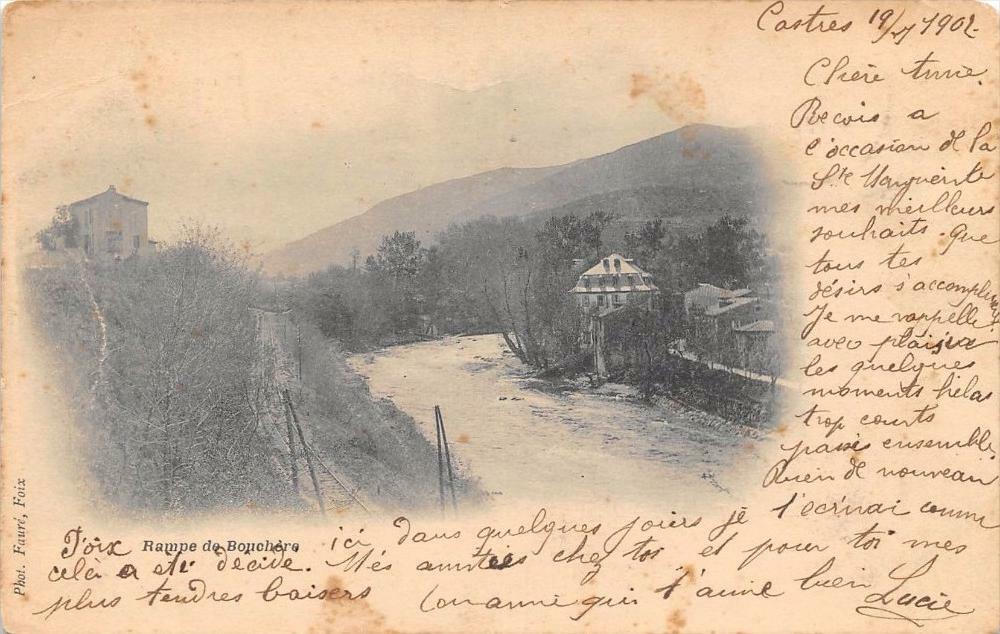 Castres 19/7 1902
Chère Annie.
Recois a
l'occasion de la
Ste Marguerite
mes meilleurs
souhaits. Que
tous tes
désirs s'accomplissent
Je me rappelle
avec plaisir
les quelques
moments hélas
trop courts
passés ensemble.
Rien de nouveau
ici dans quelques jours je t'écrirai comme
Foix Rampe de Bouchère
celà a été décidé. Mes amitiés chez toi et pour toi mes
plus tendres baisers ton amie qui t'aime bien Lucie
Phot. Fauré, Foix